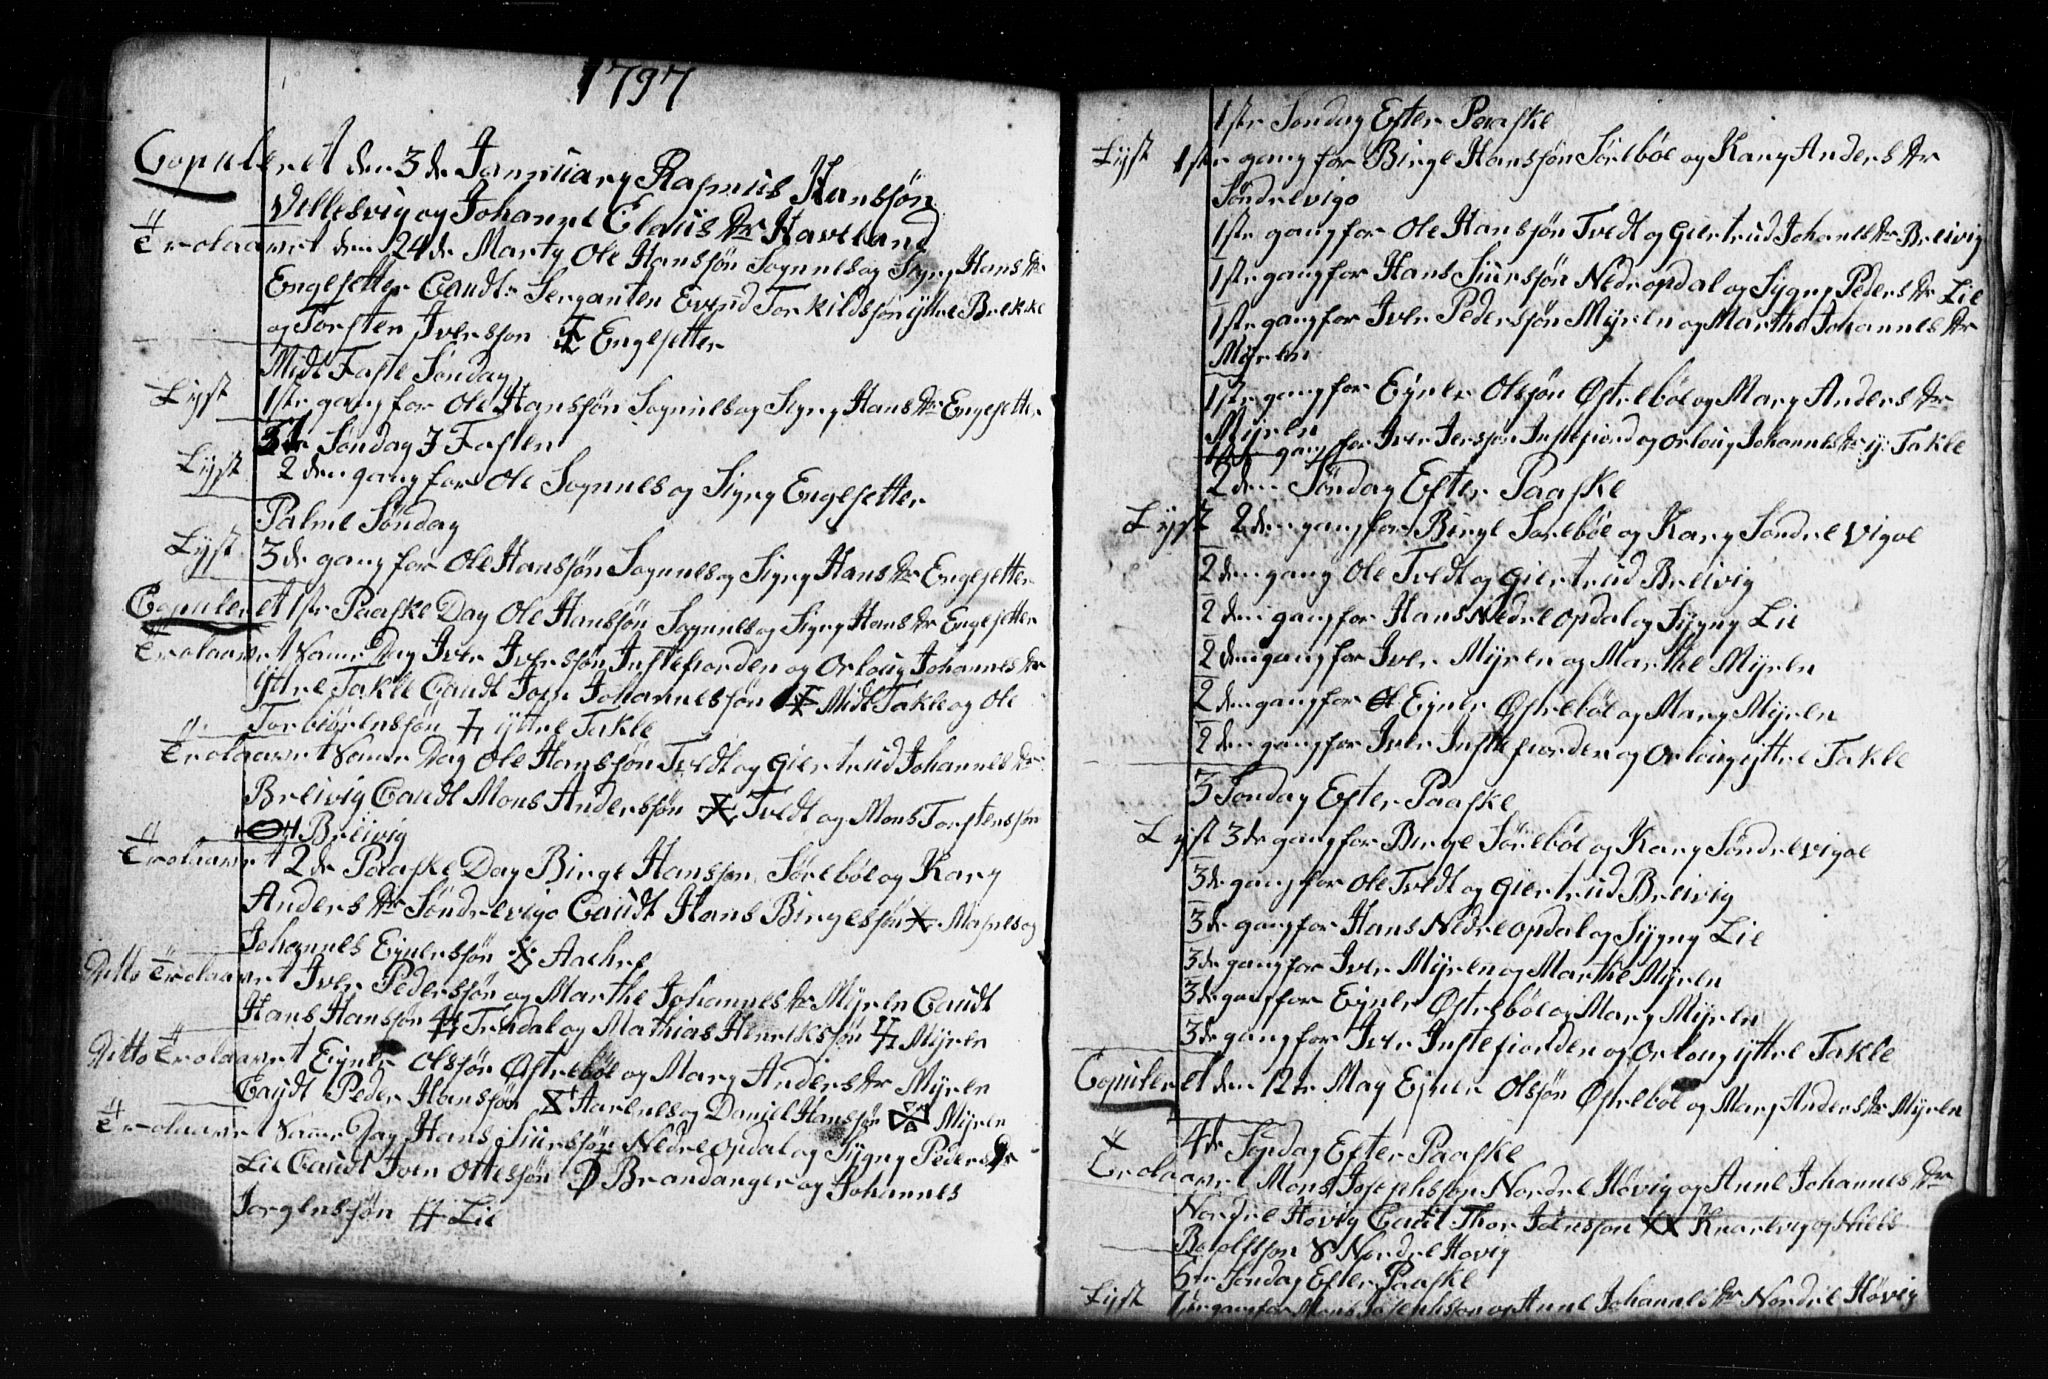 1797
Copuleret den 3 de Januuary Rasmus Hansøn
Vellesvig og Johanne Claus dtr Haveland
Trolaavet den 24 de Marty Ole Hansøn Sognnes og Signy Hans dtr
Engesetter Caudt: Serganten Evind Torkildsøn yttre Brekke
og Torsten Iversøn Engesetter
Midt Faste Søndag
Lyst 1ste gang for Ole Hansøn Sognnes og Signy Hans dtr Engesetter
5te Søndag I Fasten
Lyst 2 den gang for Ole Sognnes og Signy Engesetter
Palme Søndag
Lyst 3 de gang for Ole Hansøn Sognnes og Signy Hans dtr Engesetter
Copuleret 1ste Paaske Dag Ole Hansøn Sognnes og Signy Hans dtr Engesetter
Trolaavet Same Dag Iver Iversøn Instefiorden og Orloug Johannes dtr
yttre Takle Caudt Joen Johannessøn Midt Takle og Ole
Torbiørensøn yttre Takle
Trolaavet Same Dag Ole Hansøn Tvedt og Giertrud Johannes dtr
Breivig Caudt Mons Andersøn Tvedt og Mons Torstensøn
Breivig
Trolaavet 2 de Paaske Dag Birge Hanssøn Sørebøe og Kary
Anders dtr Søndrevigo Caudt Hans Birgesøn Masnes og
Johannes Eynersøn Aachre
Ditto Trolaavet Iver Pedersøn og Marthe Johannes dtr Myren Caudt
Hans Hansøn Trædal og Mathias Henriksøn Myren
Ditto Trolaavet Eyner Olsøn Østrebøe og Mary Anders dtr Myren
Caudt Peder Hansøn Aarenes og Daniel Hansøn Myren
Trolaavet Same Dag Hans Siursøn Nedre opdal og Sygny Peders dtr
Lie Caudt Joen Ottesøn Brandanger og Johannes
Jorgensøn Lie
1ste Søndag Efter Paaske
Lyst 1ste gang for Birge Hansøn Sørebøe og Kary Anders dtr
Søndrevigo
1ste gang for Ole Hansøn Tvedt og Giertrud Johanes dtr Breivig
1ste gang for Hans Siursøn Nedreopdal og Sygny Peders dtr Lie
1ste gang for Iver Pedersøn Myren og Marthe Johannes dtr
Myren
1ste gang for Eyner Olsøn Østrebøe og Mary Anders dtr
Myren
1ste gang for Iver Iersøn Instefiord og Orloug Johannes dtr y: Takle
2 den Søndag Efter Paaske
Lyst 2 den gang for Birge Sørebøe og Kary Søndre Vigoe
2 den gang Ole Tvedt og Giertrud Breivig
2 den gang for Hans Nedre opdal og Sygny Lie
2 den gang for Iver Myren og Marthe Myren
2 den gang for Eyner Østrebøe og Mary Myren
2 den gang for Iver Instefiorden og Orloug yttre Takle
3 Søndag Efter Paaske
Lyst 3 de gang for Birge Sørebøe og Kary Søndrevigoe
3 de gang for Ole Tvedt og Giertrud Breivig
3 de gang for Hans Nedre opdal og Sygny Lie
3 de gang for Iver Myren og Marthe Myren
3 de gang for Eyner Østrebøe og Mary Myren
3 de gang for Iver Instefiorden og Orloug yttre Takle
Copuleret den 12te May Eyner Olsøn Østrebøe og Mary Anders dtr Myren
4 de Søndag Efter Paaske
Trolaavet Mons Josephsøn Nordre Høvig og Anne Johannes dtr
Nordre Høvig Caudt Thor Joensøn Knarvig og Niels
Rolofsøn Nordre Høvig
5te Søndag Efter Paaske
Lyst 1ste gang for Mons Josephsøn og Anne Johannes dtr Nordre Høvig